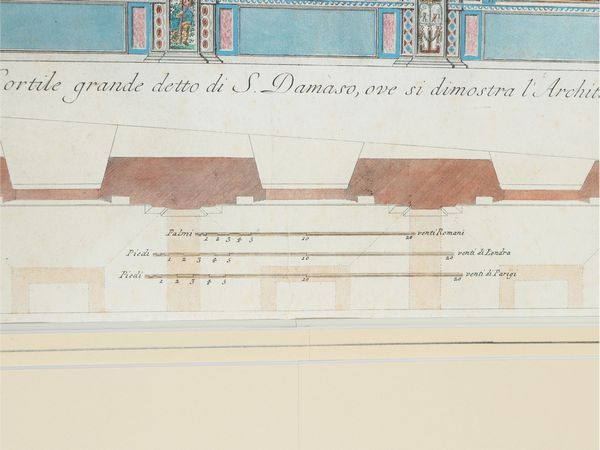 Cortile grande detto di S. Damaso, ove si dimostra l'Archit
Palmi 1 2 3 4 5 10 20 venti Romani
Piedi 1 2 3 4 5 10 20 venti di Londra
Piedi 1 2 3 4 5 10 20 venti di Parigi